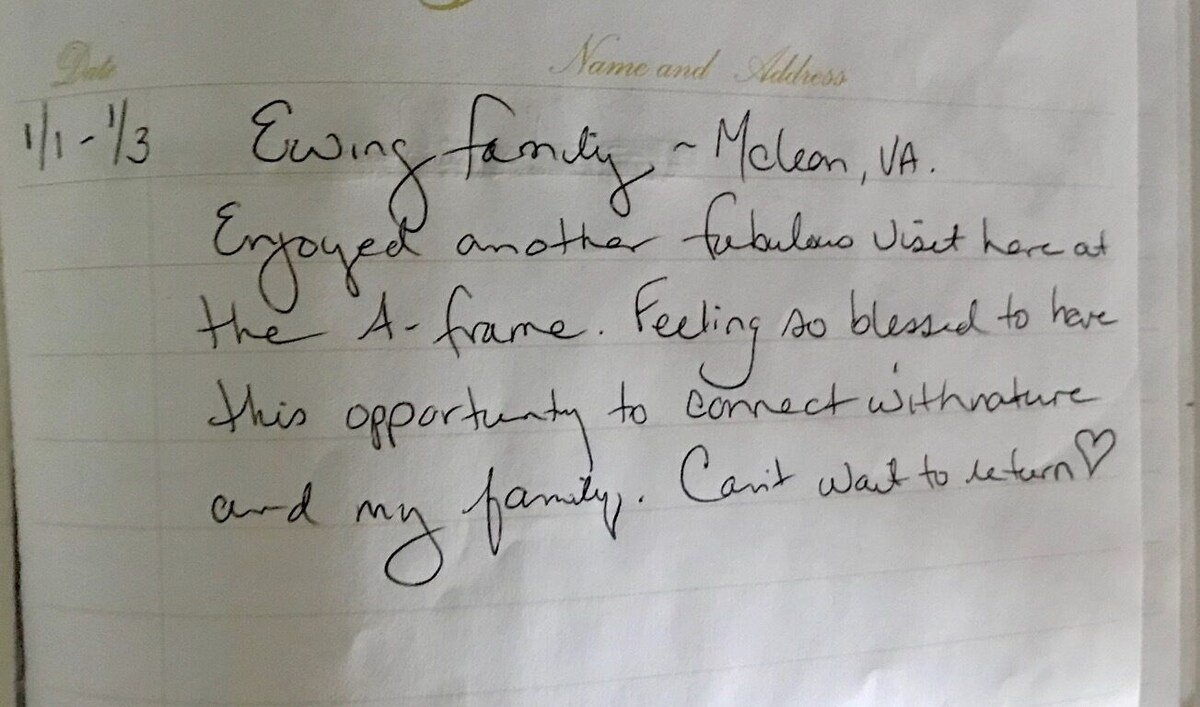 Date Name and Address
1/1 - 1/3 Ewing family ~ Mclean, VA.
Enjoyed another fabulous visit here at
the A-frame. Feeling so blessed to have
this opportunity to connect with nature
and my family. Can't wait to return ♡